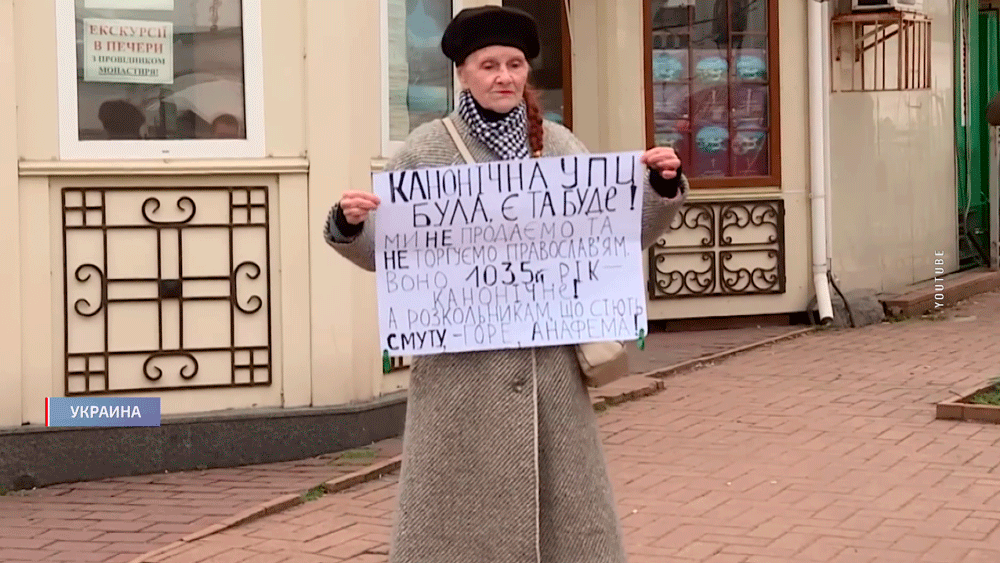 ЕКСКУРСІЇ
В ПЕЧЕРИ
З ПРОВІДНИКОМ
МОНАСТИРЯ!
КАНОНІЧНА УПЦ
БУЛА, Є ТА БУДЕ!
МИ НЕ ПРОДАЄМО ТА
НЕ ТОРГУЄМО ПРАВОСЛАВ'ЯМ.
ВОНО 1035й РІК —
КАНОНІЧНЕ!
А РОЗКОЛЬНИКАМ, ЩО СІЮТЬ
СМУТУ, - ГОРЕ, АНАФЕМА!
УКРАИНА
YOUTUBE